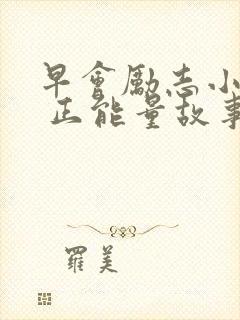 早會勵志小
正能量故事
羅美